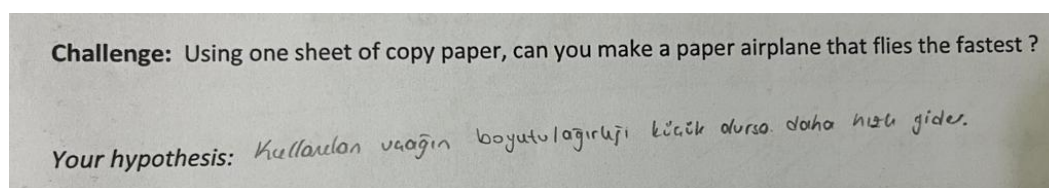 Challenge: Using one sheet of copy paper, can you make a paper airplane that flies the fastest ?
Your hypothesis: Kullanılan uçağın boyutu/ağırlığı küçük olursa daha hızlı gider.